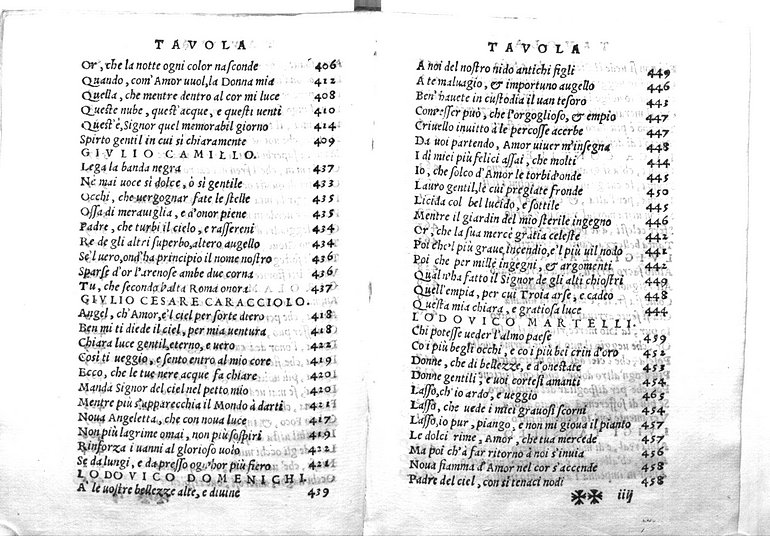 TAVOLA
Or, che la notte ogni color nasconde 406
Quando, com'Amor vuol, la Donna mia 412
Quella, che mentre dentro al cor mi luce 408
Queste nube, quest'acque, e questi uenti 410
Quest'è, Signor quel memorabil giorno 414
Spirto gentil in cui si chiaramente 409
GIVLIO CAMILLO.
Lega la banda negra 437
Ne mai uoce si dolce, ò si gentile 433
Occhi, che uergognar fate le stelle 435
Ossa di merauiglia, e d'onor piene 435
Padre, che turbi il cielo, e rassereni 434
Re de gli altri superbo, altero augello 434
Se'l uero, ond'ha principio il nome nostro 436
Sparse d'or l'arenose ambe due corna 436
Tu, che seconda Roma onora 437
GIVLIO CESARE CARACCIOLO.
Angel, ch'Amor, e'l ciel per sorte diero 418
Ben mi ti diede il ciel, per mia uentura 418
Chiara luce gentil, eterno, e uero 422
Cosi ti ueggio, e sento entro al mio core 419
Ecco, che le tue nere acque fa chiare 420
Manda Signor del ciel nel petto mio 420
Mentre più s'apparecchia il Mondo à darti 421
Noua Angeletta, che con noua luce 417
Non più lagrime omai, non più sospiri 419
Rinforza i uanni al glorioso uolo 422
Se da lungi, e da presso più fiero 421
LODOVICO DOMENICHI.
A' le uostre bellezze alte, e diuine 439
TAVOLA
A noi del nostro nido antichi figli 449
A te maluagio, & importuno augello 446
Ben' hauete in custodia il uan tesoro 443
può, che l'orgoglioso, & empio 447
Criuello inuitto à le percosse acerbe 447
Da uoi partendo, Amor uiuer m'insegna 448
I di miei più felici assai, che molti 444
Io, che solco d'Amor le torbid'onde 445
Lauro gentil, le cui pregiate fronde 450
Licida col bel lucido, e sottile 445
Mentre il giardin del mio sterile ingegno 446
Or, che la sua mercè gratia celeste 442
Poi che'l più graue incendio, e'l più util nodo 441
Poi che per mille ingegni, & argomenti 442
Qual n'ha fatto il Signor de gli alti chiostri 449
Quell'empia, per cui Troia arse, e cadeo 448
Questa mia chiara, e gratiosa luce 444
LODOVICO MARTELLI.
Chi potesse ueder l'almo paese 459
Co i più begli occhi, e co i più bei crin d'oro 452
Donne, che di bellezze, e d'onestate 453
Donne gentili, e uoi cortesi amanti 454
Lasso, ch'io ardo, e ueggio 465
Lasso, che uede i miei grauosi scorni 454
Lasso, io pur, piango, e non mi gioua il pianto 457
Le dolci rime, Amor, che tua mercede 457
Ma poi ch'à far ritorno à noi s'inuia 456
Noua fiamma d'Amor nel cor s'accende 458
Padre del ciel, con si tenaci nodi 458
✠✠ iiij